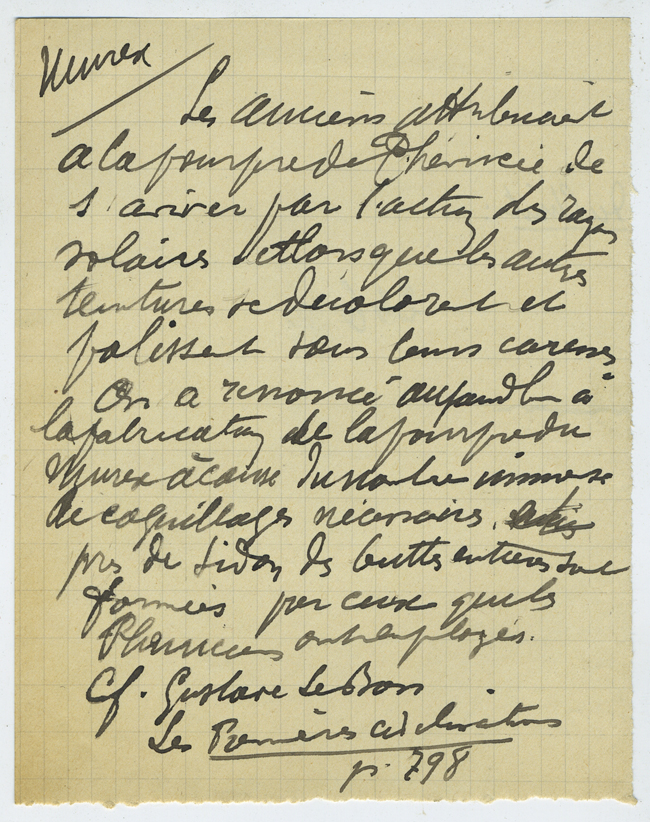 Murex
Les anciens attribuaient
a la pourpre de Phénicie de
s'aviver par l'action des rayons
solaires et lorsque les autres
teintures se décolorent et
palissent sous leurs caresses
On a renoncé aujourd'hui à
la fabrication de la pourpre du
Murex à cause du nombre immense
de coquillages nécessaires.
près de Sidon des buttes entières sont
formées par ceux que les
Phéniciens ont employés.
Cf. Gustave Le Bon
Les Premières civilisations
p. 798